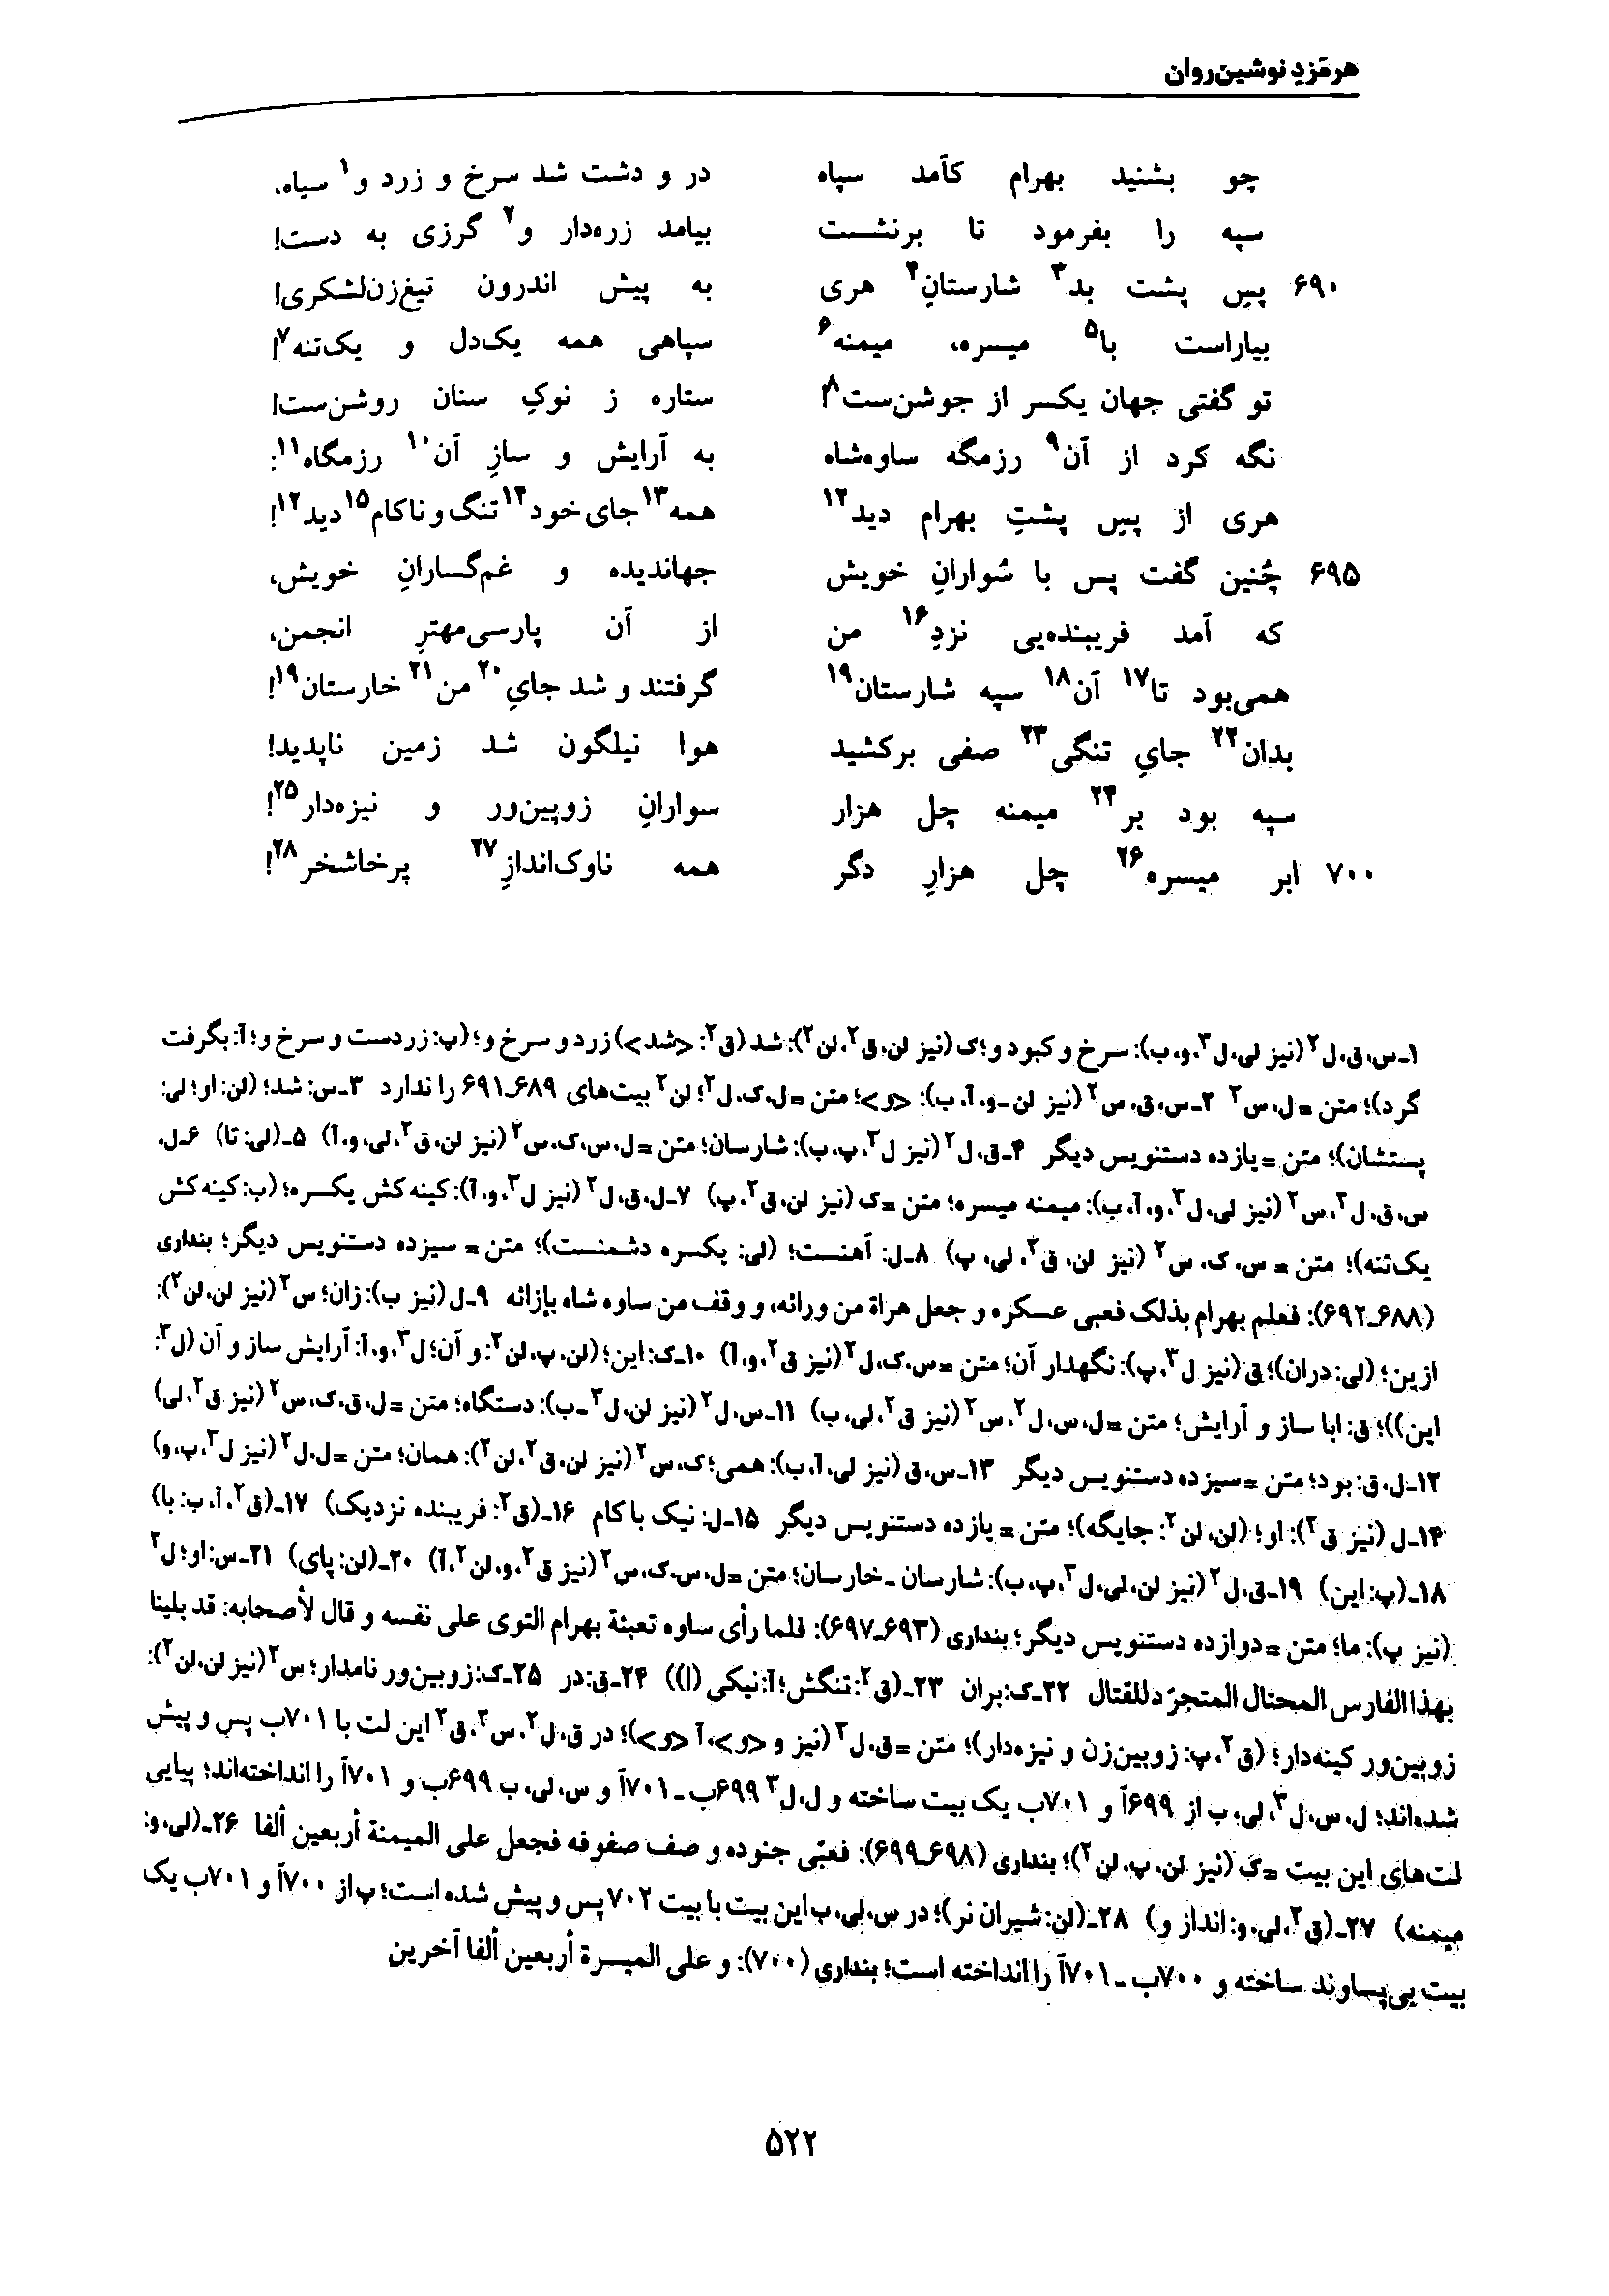 هرمَزدِ نوشین‌روان
چو بشنید بهرام کآمد سپاه در و دشت شد سرخ و زرد و۱ سیاه،
سپه را بفرمود تا برنشست بیامد زره‌دار و۲ گرزی به دست!
۶۹۰ پسِ پشت بد۳ شارستانِ۴ هری به پیش اندرون تیغ‌زن‌لشکری!
بیاراست با۵ میسره، میمنه۶ سپاهی همه یک‌دل و یک‌تنه۷!
تو گفتی جهان یکسر از جوشن‌ست۸! ستاره ز نوکِ سنان روشن‌ست!
نگه کرد از آن۹ رزمگه ساوه‌شاه به آرایش و سازِ آن۱۰ رزمگاه۱۱:
هری از پسِ پشتِ بهرام دید۱۲ همه۱۳ جای خود۱۴ تنگ و ناکام۱۵ دید۱۲!
۶۹۵ چُنین گفت پس با سُوارانِ خویش جهاندیده و غم‌گسارانِ خویش،
که آمد فریبنده‌یی نزدِ۱۶ من از آن پارسی‌مهترِ انجمن،
همی‌بود تا۱۷ آن۱۸ سپه شارستان۱۹ گرفتند و شد جایِ۲۰ من۲۱ خارستان۱۹!
بدان۲۲ جایِ تنگی۲۳ صفی برکشید هوا نیلگون شد زمین ناپدید!
سپه بود بر۲۴ میمنه چل هزار سوارانِ زوپین‌ور و نیزه‌دار۲۵!
۷۰۰ ابر میسره۲۶ چل هزارِ دگر همه ناوک‌اندازِ۲۷ پرخاشخر۲۸!
۱ـ س، ق، ل۲ (نیز لی، ل۳، و، ب): سرخ و کبود و؛ ک (نیز لن، ق۲، لن۲): شد (ق۲: <شد>) زرد و سرخ و؛ (پ: زردست و سرخ و؛ آ: بگرفت
گرد)؛ متن = ل، س۲ ۲ـ س، ق، س۲ (نیز لن ـ و، آ، ب): <و>؛ متن = ل، ک، ل۲؛ لن۲ بیت‌های ۶۸۹ـ۶۹۱ را ندارد ۳ـ س: شد؛ (لن: او؛ لی:
پستشان)؛ متن = یازده دستنویس دیگر ۴ـ ق، ل۲ (نیز ل۳، پ، ب): شارسان؛ متن = ل، س، ک، س۲ (نیز لن، ق۲، لی، و، آ) ۵ـ (لی: تا) ۶ـ ل،
س، ق، ل۲، س۲ (نیز لی، ل۳، و، آ، ب): میمنه میسره؛ متن = ک (نیز لن، ق۲، پ) ۷ـ ل، ق، ل۲ (نیز ل۳، و، آ): کینه کش یکسره؛ (ب: کینه کش
یک‌تنه)؛ متن = س، ک، س۲ (نیز لن، ق۲، لی، پ) ۸ـ ل: آهنست؛ (لی: یکسره دشمنست)؛ متن = سیزده دستنویس دیگر؛ بنداری
(۶۸۸ـ۶۹۲): فعلم بهرام بذلک فعبی عسکره و جعل هراة من ورائه، و وقف من ساوه شاه بإزائه ۹ـ ل (نیز ب): زان؛ س۲ (نیز لن، لن۲):
ازین؛ (لی: دران)؛ ق (نیز ل۳، پ): نگهدار آن؛ متن = س، ک، ل۲ (نیز ق۲، و، آ) ۱۰ـ ک: این؛ (لن، پ، لن۲: و آن؛ ل۳، و، آ: آرایش ساز و آن (ل۳:
این))؛ ق: ابا ساز و آرایش؛ متن = ل، س، ل۲، س۲ (نیز ق۲، لی، ب) ۱۱ـ س، ل۲ (نیز لن، ل۳ ـ ب): دستگاه؛ متن = ل، ق، ک، س۲ (نیز ق۲، لی)
۱۲ـ ل، ق: بود؛ متن = سیزده دستنویس دیگر ۱۳ـ س، ق (نیز لی، آ، ب): همی؛ ک، س۲ (نیز لن، ق۲، لن۲): همان؛ متن = ل، ل۲ (نیز ل۳، پ، و)
۱۴ـ ل (نیز ق۲): او؛ (لن، لن۲: جایگه)؛ متن = یازده دستنویس دیگر ۱۵ـ ل: نیک با کام ۱۶ـ (ق۲: فریبنده نزدیک) ۱۷ـ (ق۲، آ، ب: با)
۱۸ـ (پ: این) ۱۹ـ ق، ل۲ (نیز لن، لی، ل۳، پ، ب): شارسان ـ خارسان؛ متن = ل، س، ک، س۲ (نیز ق۲، و، لن۲، آ) ۲۰ـ (لن: پای) ۲۱ـ س: او؛ ل۲
(نیز پ): ما؛ متن = دوازده دستنویس دیگر؛ بنداری (۶۹۳ـ۶۹۷): فلما رأی ساوه تعبئة بهرام التوی علی نفسه و قال لأصحابه: قد بلینا
بهذا الفارس المحتال المتجرّد للقتال ۲۲ـ ک: بران ۲۳ـ (ق۲: تنگش؛ آ: نیکی (!)) ۲۴ـ ق: در ۲۵ـ ک: زوپین‌ور نامدار؛ س۲ (نیز لن، لن۲):
زوپین‌ور کینه‌دار؛ (ق۲، پ: زوپین‌زن و نیزه‌دار)؛ متن = ق، ل۲ (نیز و <و>، آ <و>)؛ در ق، ل۲، س۲، ق۲ این لت با ۷۰۱ب پس و پیش
شده‌اند؛ ل، س، ل۳، لی، ب از ۶۹۹آ و ۷۰۱ب یک بیت ساخته و ل، ل۳ ۶۹۹ب ـ ۷۰۱آ و س، لی، ب ۶۹۹ب و ۷۰۱آ را انداخته‌اند؛ پیاپی
لت‌های این بیت = ک (نیز لن، پ، لن۲)؛ بنداری (۶۹۸ـ۶۹۹): فعبّی جنوده و صف صفوفه فجعل علی المیمنة أربعین ألفا ۲۶ـ (لی، و:
میمنه) ۲۷ـ (ق۲، لی، و: انداز و) ۲۸ـ (لن: شیران نر)؛ در س، لی، ب این بیت با بیت ۷۰۲ پس و پیش شده است؛ پ از ۷۰۰آ و ۷۰۱ب یک
بیت بی‌پساوند ساخته و ۷۰۰ب ـ ۷۰۱آ را انداخته است؛ بنداری (۷۰۰): و علی المیسرة أربعین ألفا آخرین
۵۲۲